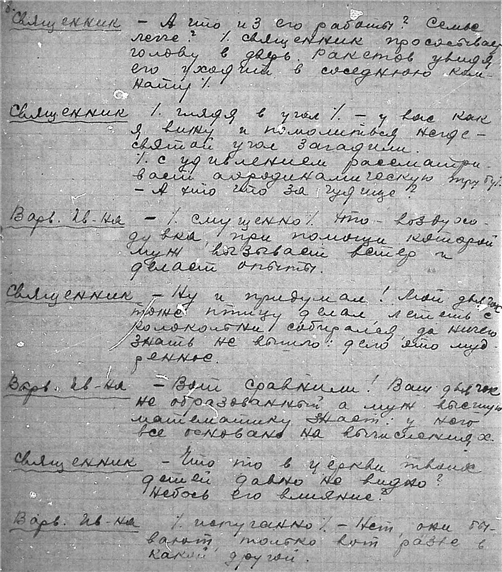 Священник – А что из его работы? Семье
легче? % священник просовывает
голову в дверь. Ракетов увидя
его уходит в соседнюю ком
нату %
Священник % глядя в угол % – у вас как
я вижу и помолиться негде
святой угол загадили.
% с удивлением рассматри-
вает аэродинамическую трубу %
– А это что за чудище?
Варв. Ев-на – % смущенно % Это – возду хо-
дувка, при помощи которой
муж вызывает ветер и
делает опыты.
Священник – Ну и придумал! Мой дьячок
тоже птицу делал лететь с
колокольни собирался, да ничего
знать не вышло: дело это муд
реное.
Варв. Ев-на – Вот сравнили! Ваш дьячок
не образованный а муж высшую
математику знает: у него
все основано на вычислениях.
Священник – Что то в церкви твоих
детей давно не видно?
Небось его влияние?
Варв. Ев-на % испуганно % – Нет, они бы-
вают, только вот разве в
какой другой.